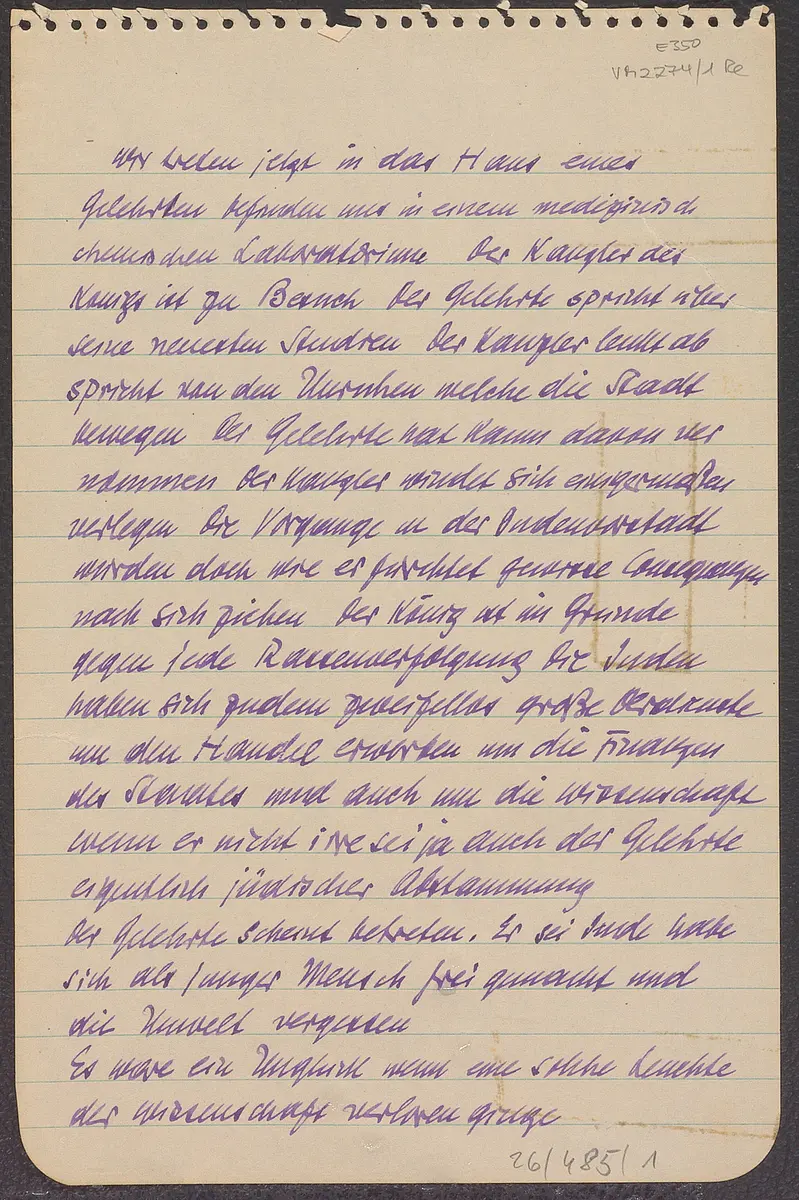 E350
VM2274/1 Re
Wir treten jetzt in das Haus eines
Gelehrten befinden uns in einem medizinisch
chemischen Laboratorium Der Kanzler des
Königs ist zu Besuch Der Gelehrte spricht über
seine neuesten Studien Der Kanzler lenkt ab
spricht von den Unruhen welche die Stadt
bewegen Der Gelehrte hat kaum davon ver
nommen Der Kanzler windet sich einigermaßen
verlegen Die Vorgange in der Judenvorstadt
würden doch wie er fürchtet gewisse Consequenzen
nach sich ziehen Der König ist im Grunde
gegen jede Rassenverfolgung Die Juden
haben sich zudem zweifellos große Verdienste
um den Handel erworben um die Finanzen
des Staates und auch um die Wissenschaft
wenn er nicht irre sei ja auch der Gelehrte
eigentlich jüdischer Abstammung
Der Gelehrte scheint betreten. Er sei Jude habe
sich als junger Mensch frei gemacht und
die Umwelt vergessen
Es wäre ein Unglück wenn eine solche Leuchte
der Wissenschaft verloren ginge
26/485/1